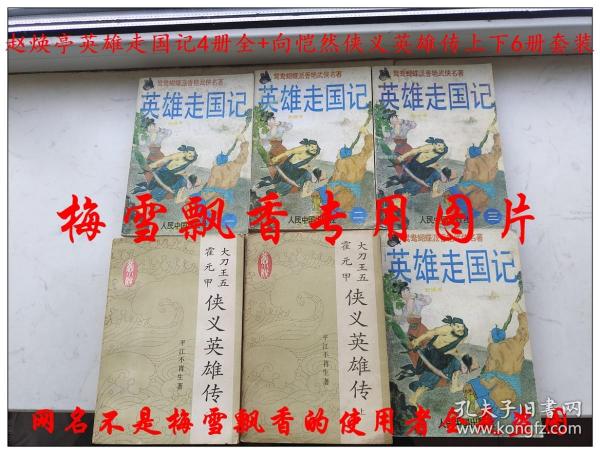 赵焕亭英雄走国记4册全+向恺然侠义英雄传上下6册套装
鸳鸯蝴蝶派香艳武侠名著
英雄走国记
一
鸳鸯蝴蝶派香艳武侠名著
英雄走国记
人民中国出版社
二
鸳鸯蝴蝶派香艳武侠名著
英雄走国记
人民中国出版社
三
梅雪飘香专用图片
大刀王五
霍元甲
侠义英雄传
平江不肖生著
大刀王五
霍元甲
侠义英雄传
上
平江不肖生著
鸳鸯蝴蝶派香艳武侠名著
英雄走国记
人民
网名不是梅雪飘香的使用者
孔夫子旧书网
www.kongfz.com